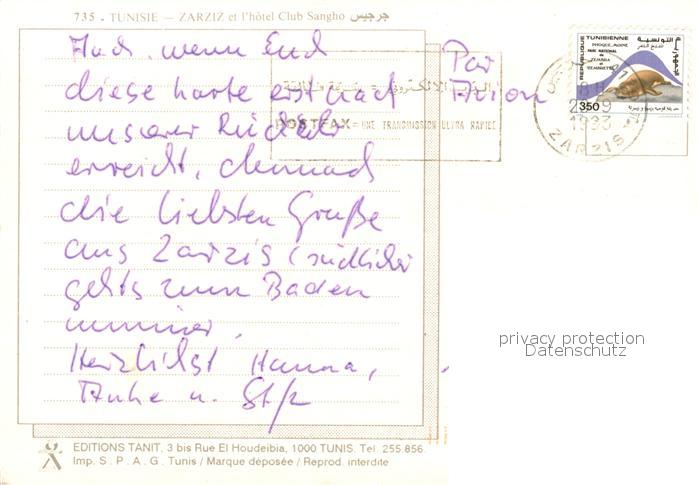 735 - TUNISIE — ZARZIZ et l'hôtel Club Sangho جرجيس
Auch wenn Euch
diese Karte erst nach
unserer Rückkehr
erreicht, dennoch
die liebsten Grüße
aus Zarzis (südlicher
gehts zum Baden
nimmer,
Herzlichst Hanna,
Anke u.
Par
Avion
POSTFAX = UNE TRANSMISSION ULTRA RAPIDE
REPUBLIQUE TUNISIENNE
التونسية
PHOQUE-MOINE
PARC NATIONAL
DE
ZEMBRA
ET
ZEMBRETTA
350
1993
ZARZIS
privacy protection
Datenschutz
EDITIONS TANIT, 3 bis Rue El Houdeibia, 1000 TUNIS. Tel. 255.856
Imp. S.P.A.G. Tunis / Marque déposée / Reprod. interdite